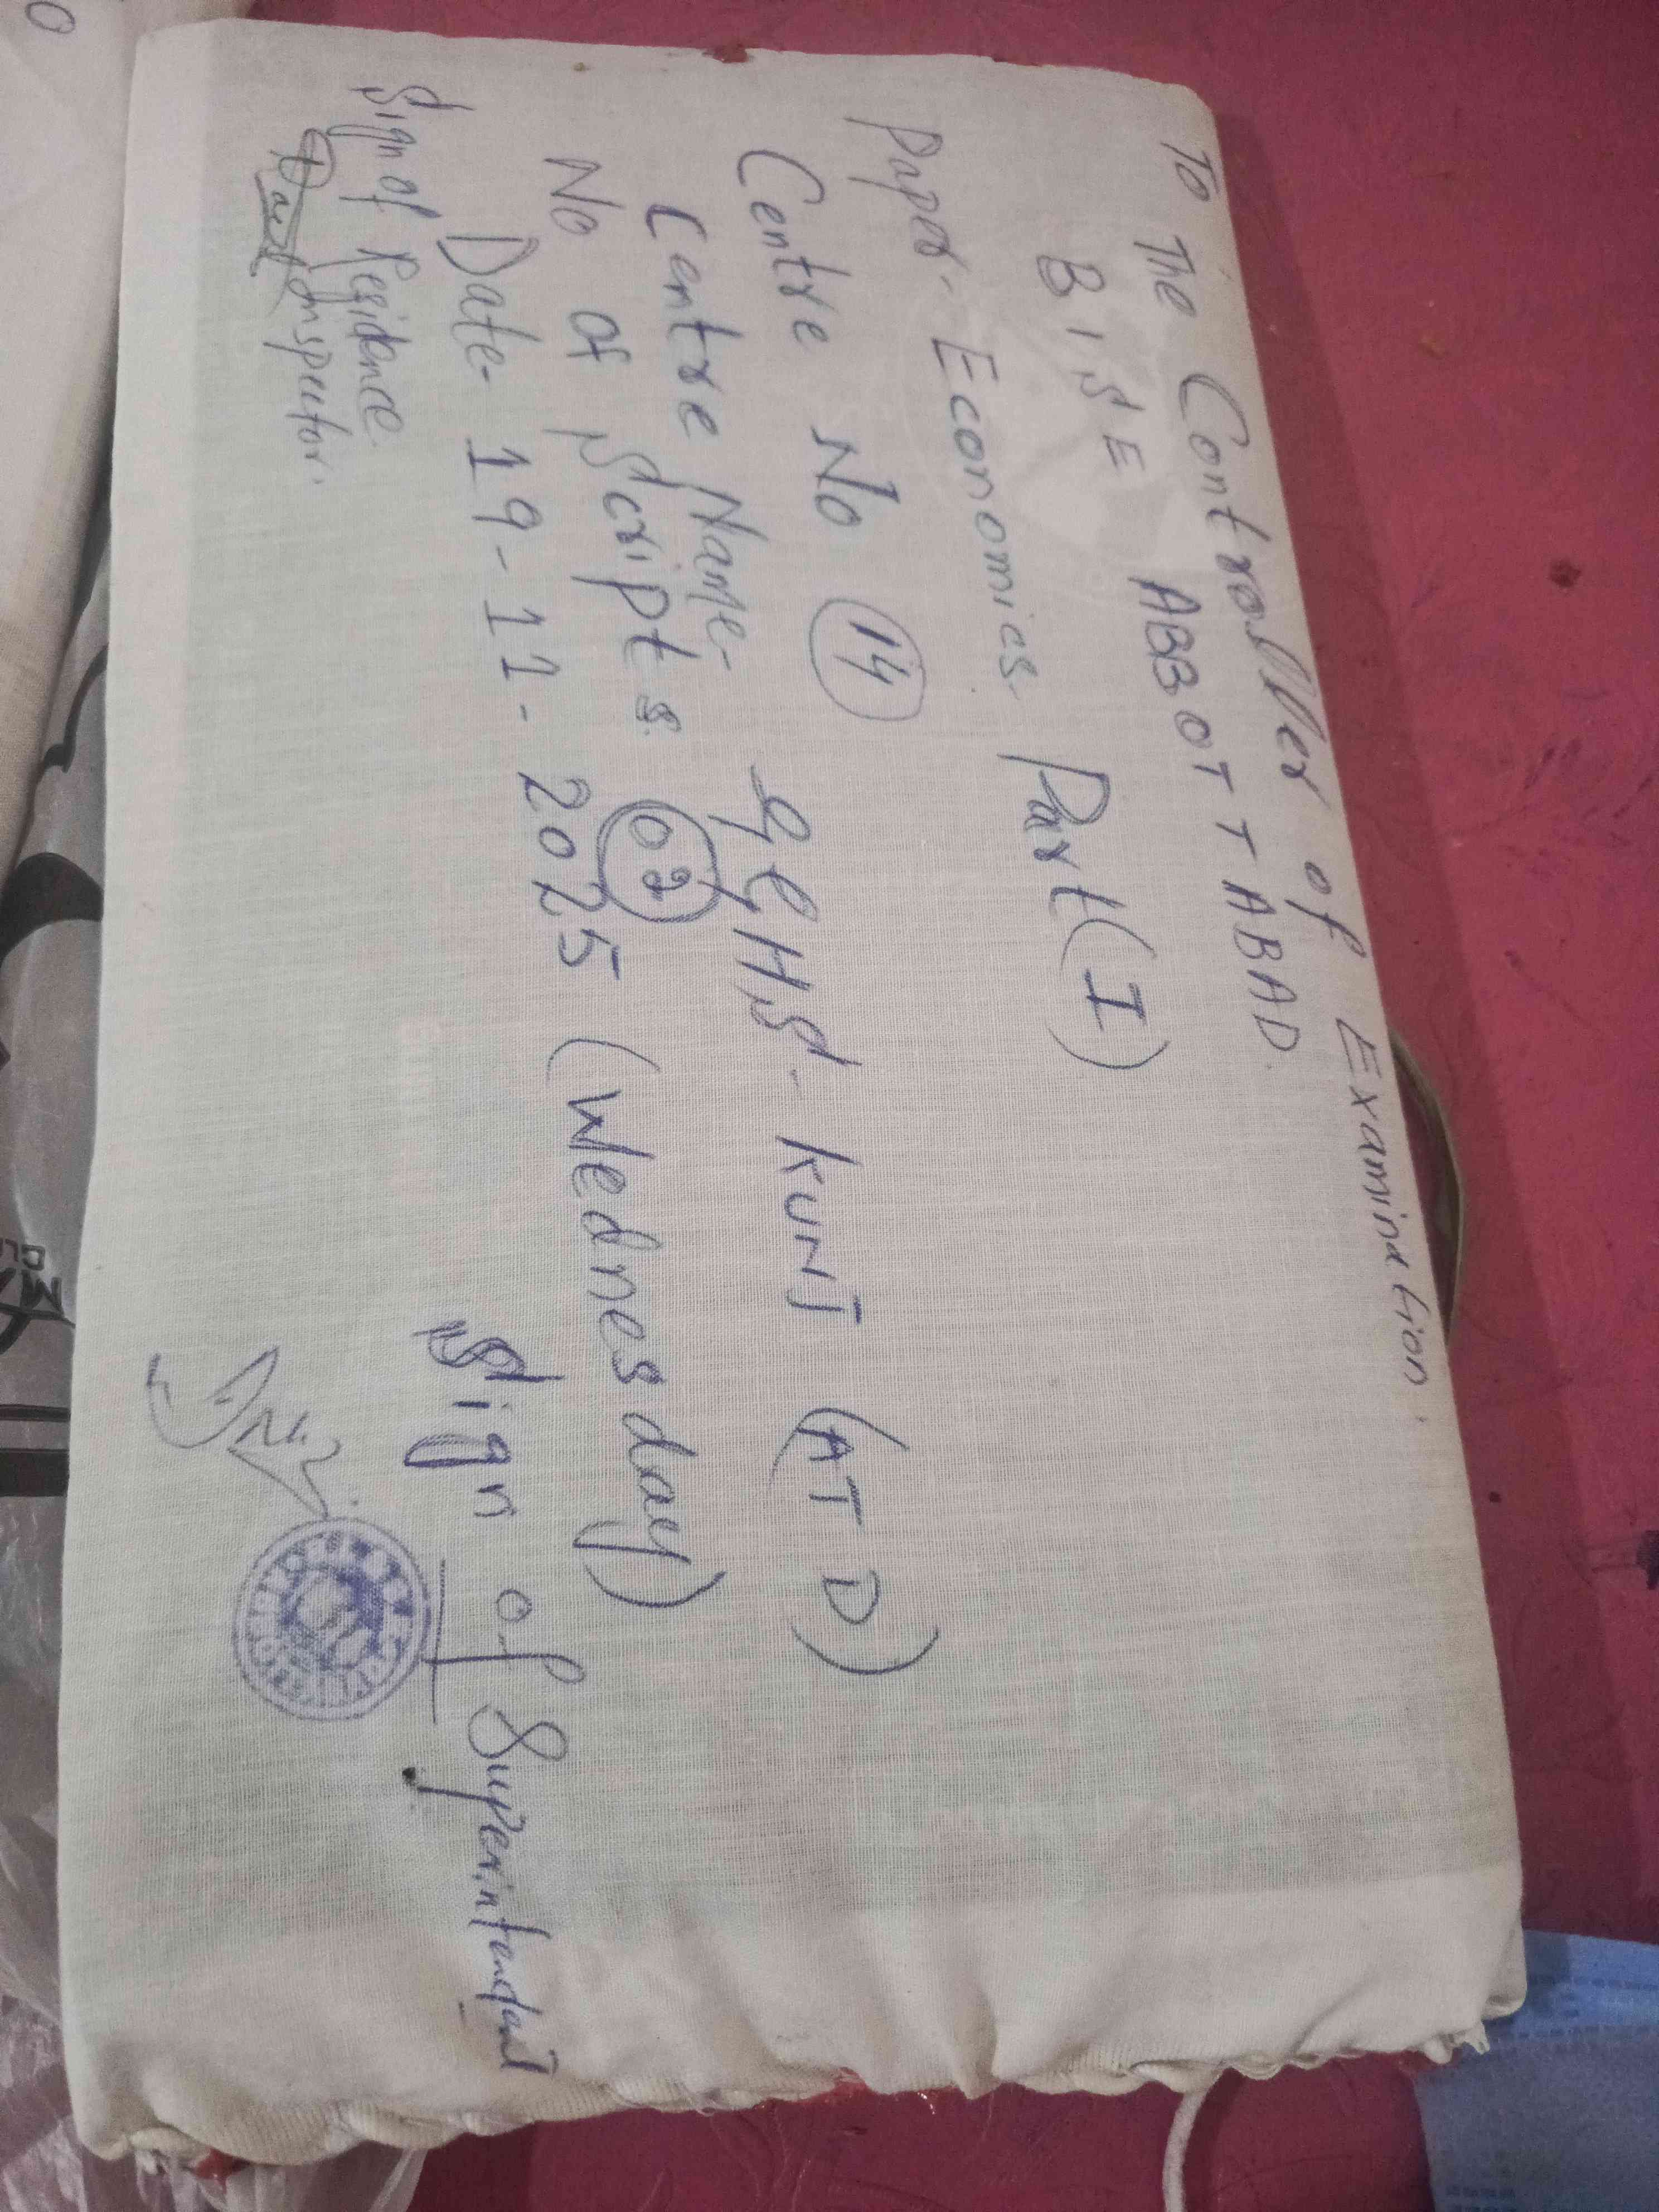 To The Controller of Examination.
BISE ABBOTTABAD.
Paper- Economics Part (I)
Centre No 14
Centre Name- GGHS- KUNJ (ATD)
No of Scripts
Date- 19-11-2025 (Wednesday)
Sign of Residence Inspector.
Sign of Superintendant